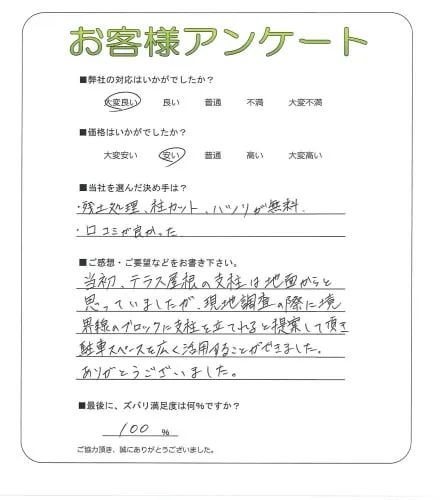 お客様アンケート
■弊社の対応はいかがでしたか?
大変良い 良い 普通 不満 大変不満
■価格はいかがでしたか?
大変安い 安い 普通 高い 大変高い
■当社を選んだ決め手は?
・残土処理、柱カット、ハツリが無料
・口コミが良かった
■ご感想・ご要望などをお書き下さい。
当初、テラス屋根の支柱は地面からと
思っていましたが、現地調査の際に境
界線のブロックに支柱を立てれると提案して頂き
駐車スペースを広く活用することができました。
ありがとうございました。
■最後に、ズバリ満足度は何%ですか?
100 %
ご協力頂き、誠にありがとうございました。